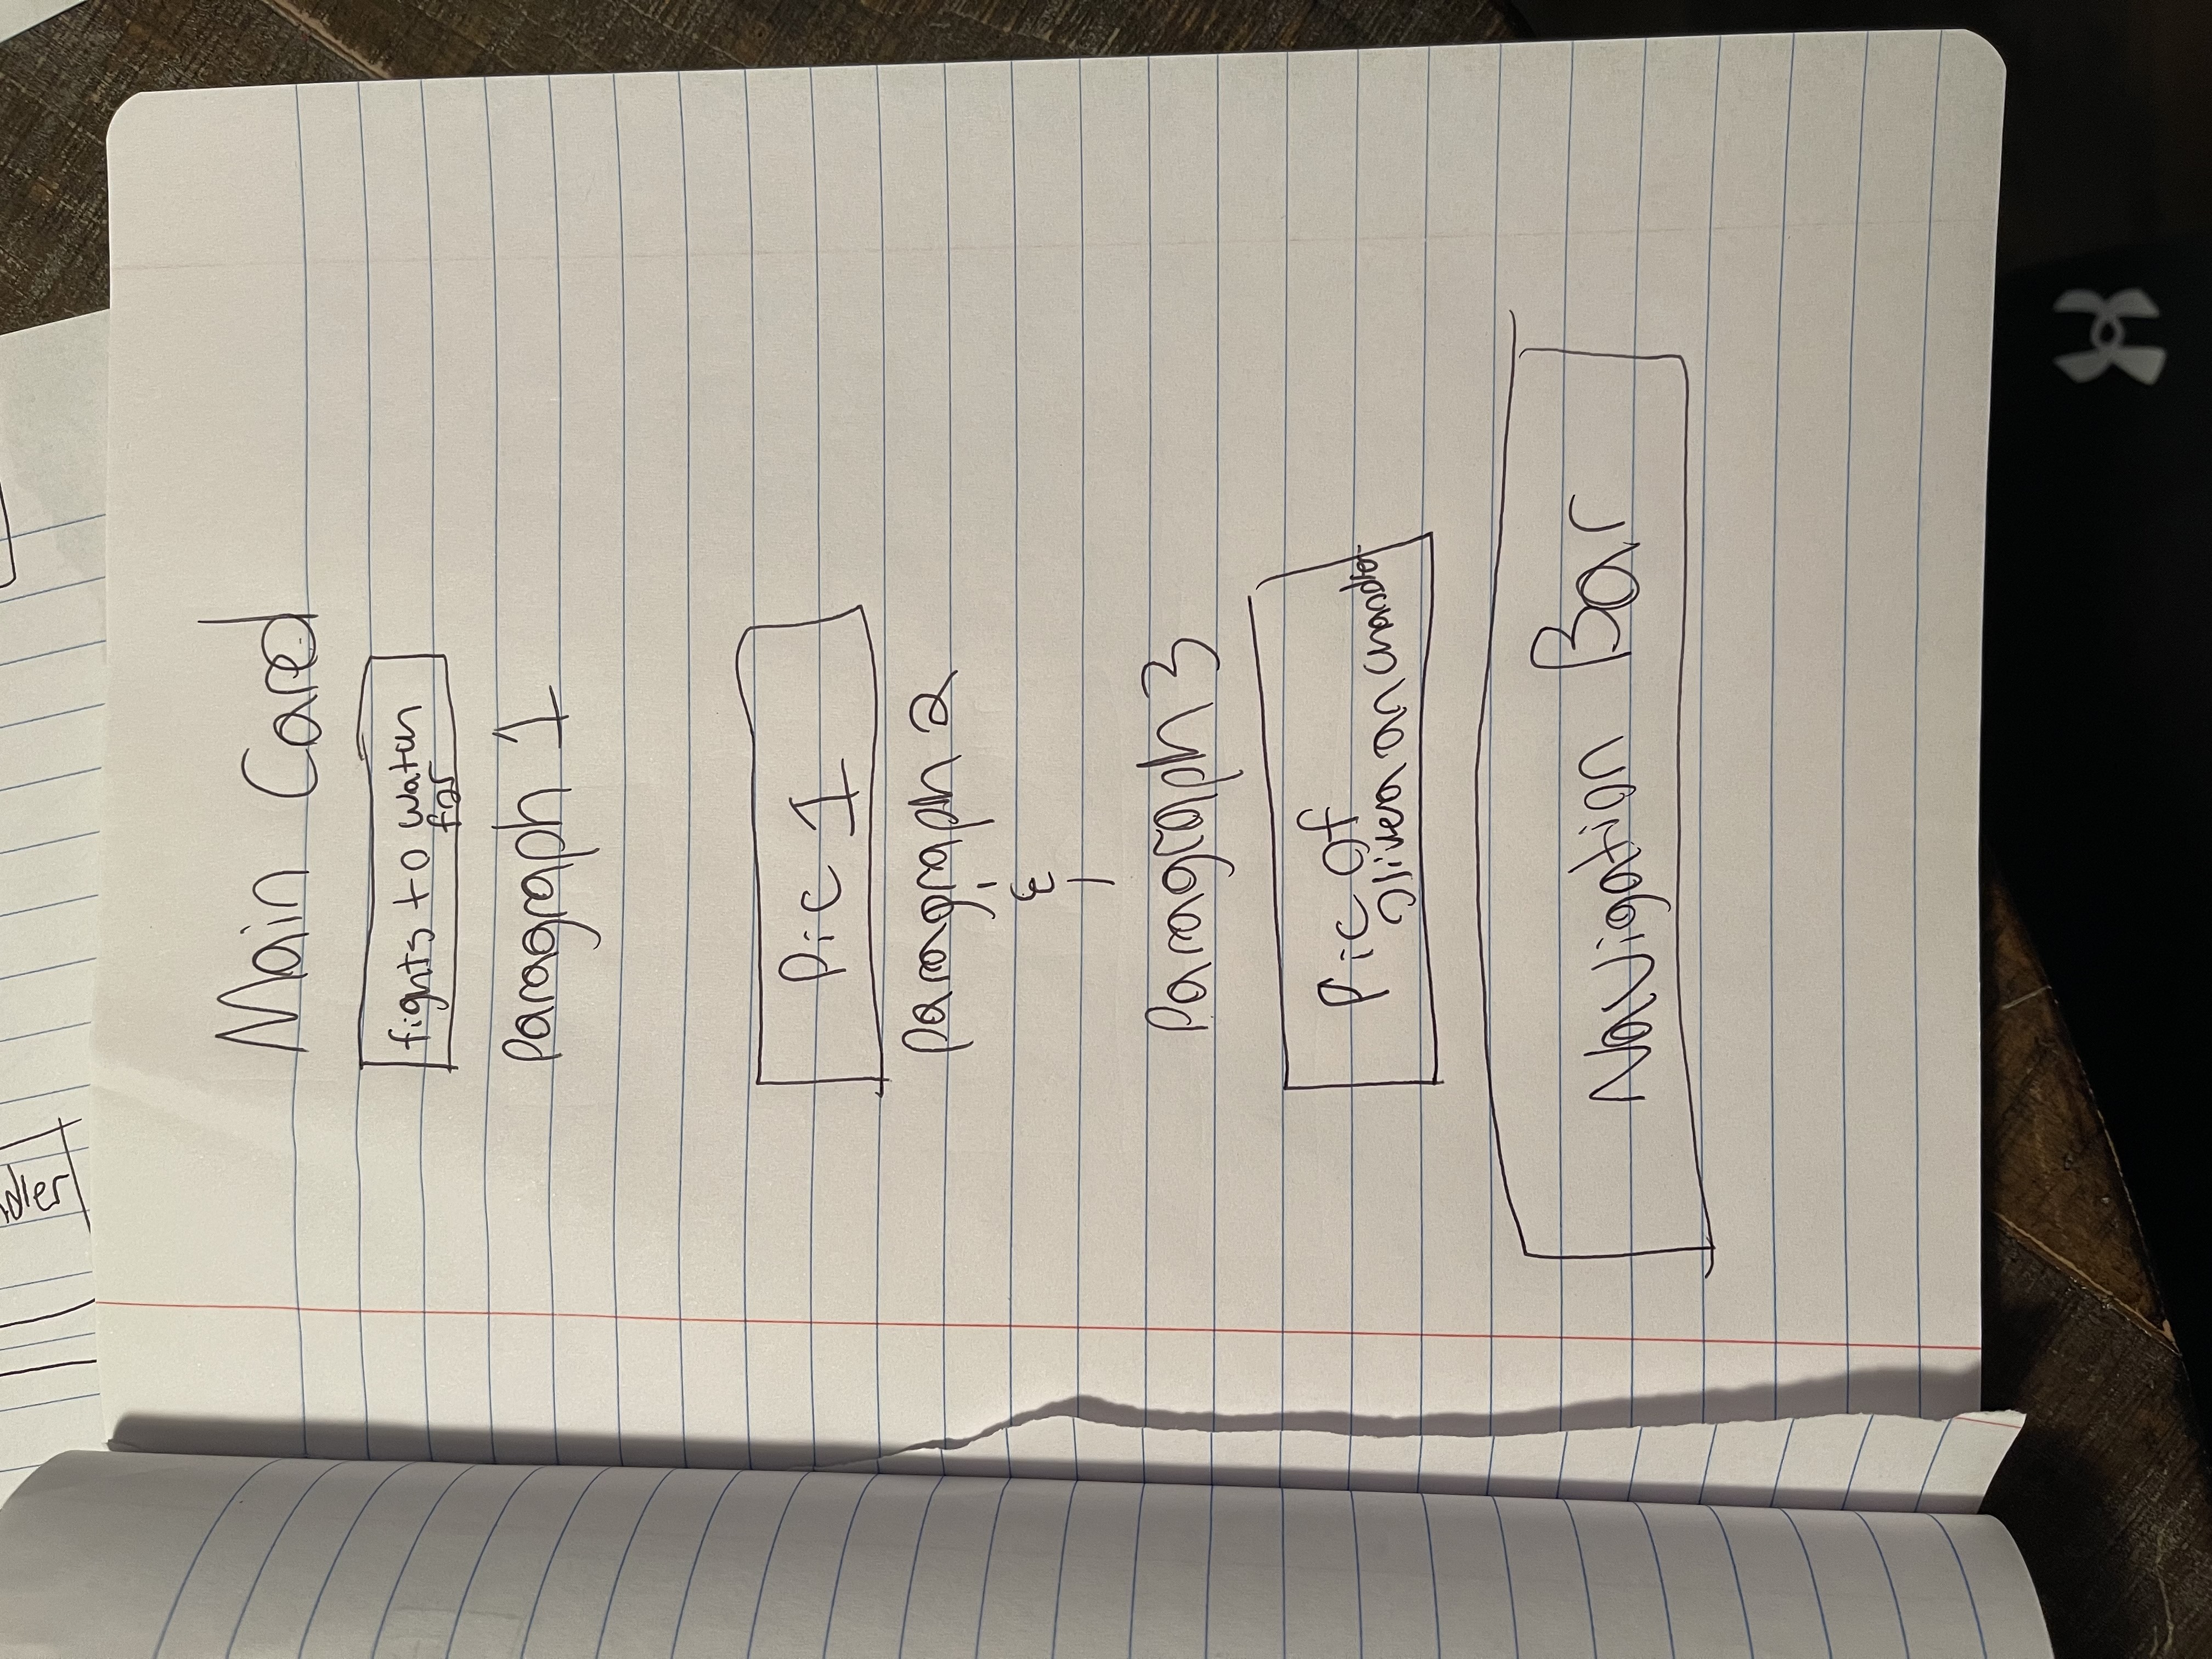 dler
Main Card
fights to watch
for
Paragraph 1
Pic 1
Paragraph 2
&
Paragraph 3
Pic Of
Olivera an Chandler
Navigation Bar